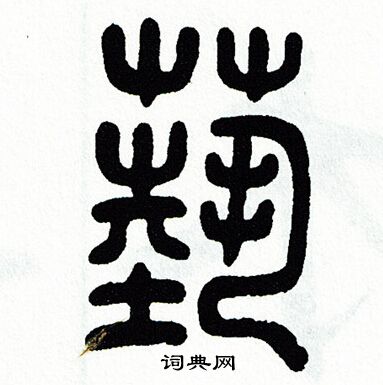 蓺
词典网